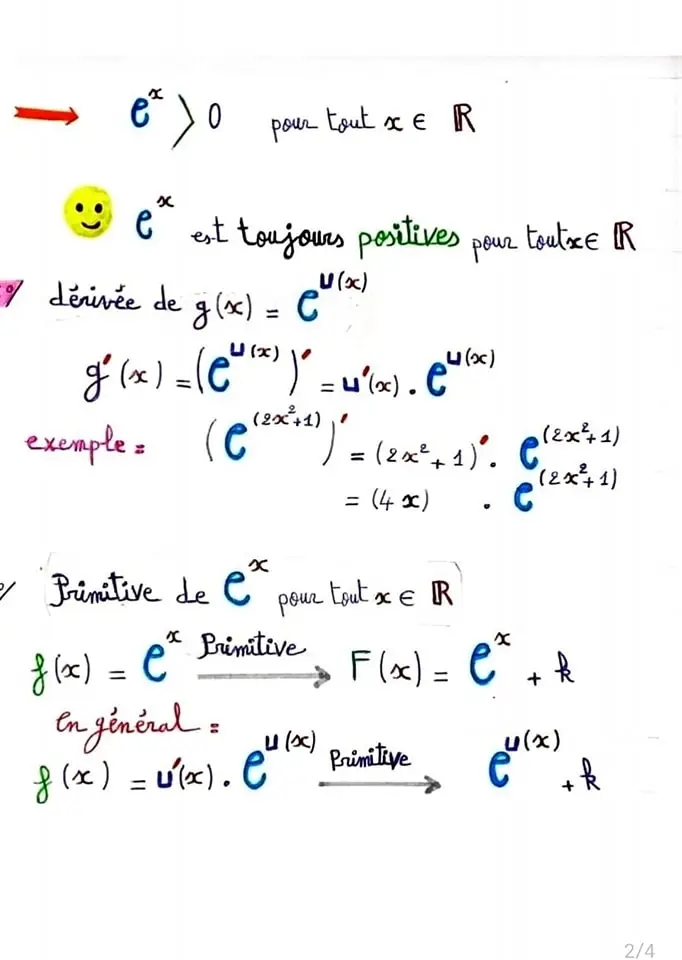 e^x > 0 pour tout x ∈ ℝ
e^x est toujours positives pour tout x ∈ ℝ
dérivée de g(x) = e^u(x)
g'(x) = (e^u(x))' = u'(x) . e^u(x)
exemple = (e^(2x²+1))' = (2x²+1)' . e^(2x²+1)
= (4x) . e^(2x²+1)
Primitive de e^x pour tout x ∈ ℝ
f(x) = e^x Primitive → F(x) = e^x + k
en général =
f(x) = u'(x) . e^u(x) Primitive → e^u(x) + k
2/4